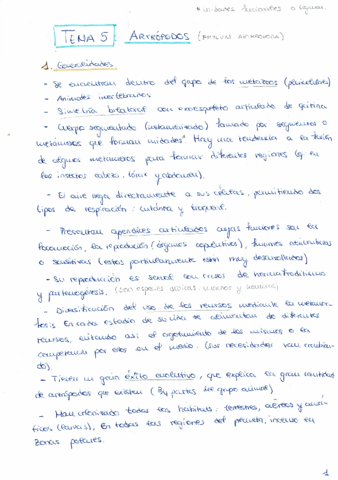 * unidades funcionales o
TEMA 5: ARTRÓPODOS
1. Generalidades
- Se encuentran dentro del grupo de los metazoos (pluricelulares)
- Animales invertebrados
- Simetría bilateral con exoesqueleto articulado de quitina
- Cuerpo segmentado (metamerizado) formado por segmentos o
metámeros que forman unidades* Hay una tendencia a la fusión
de algunos metámeros para formar diferentes regiones (ej. en
los insectos cabeza, tórax y abdomen).
- El aire llega directamente a sus células, permitiendo dos
tipos de respiración: cutánea y traqueal.
- Presentan apéndices articulados cuyas funciones son la
locomoción, la reproducción (órganos copuladores), funciones
o sensitivas (estas particularmente están muy desarrolladas)
- Su reproducción es sexual con casos de hermafroditismo
y partenogénesis. (Son especies dioicas: machos y hembras)
- Diversificación del uso de los recursos mediante la metamor-
fosis. En cada estadío de su vida se alimentan de diferentes
recursos, evitando así el agotamiento de los mismos o la
competencia por ellos en el medio. (Sus necesidades van cambian-
do).
- Tienen un gran éxito evolutivo, que explica la gran cantidad
de artrópodos que existen (3/4 partes del grupo animal)
- Han colonizado todos los hábitats: terrestres, aéreos y acuá-
ticos (larvas). En todas las regiones del planeta, incluso en
zonas polares.
1